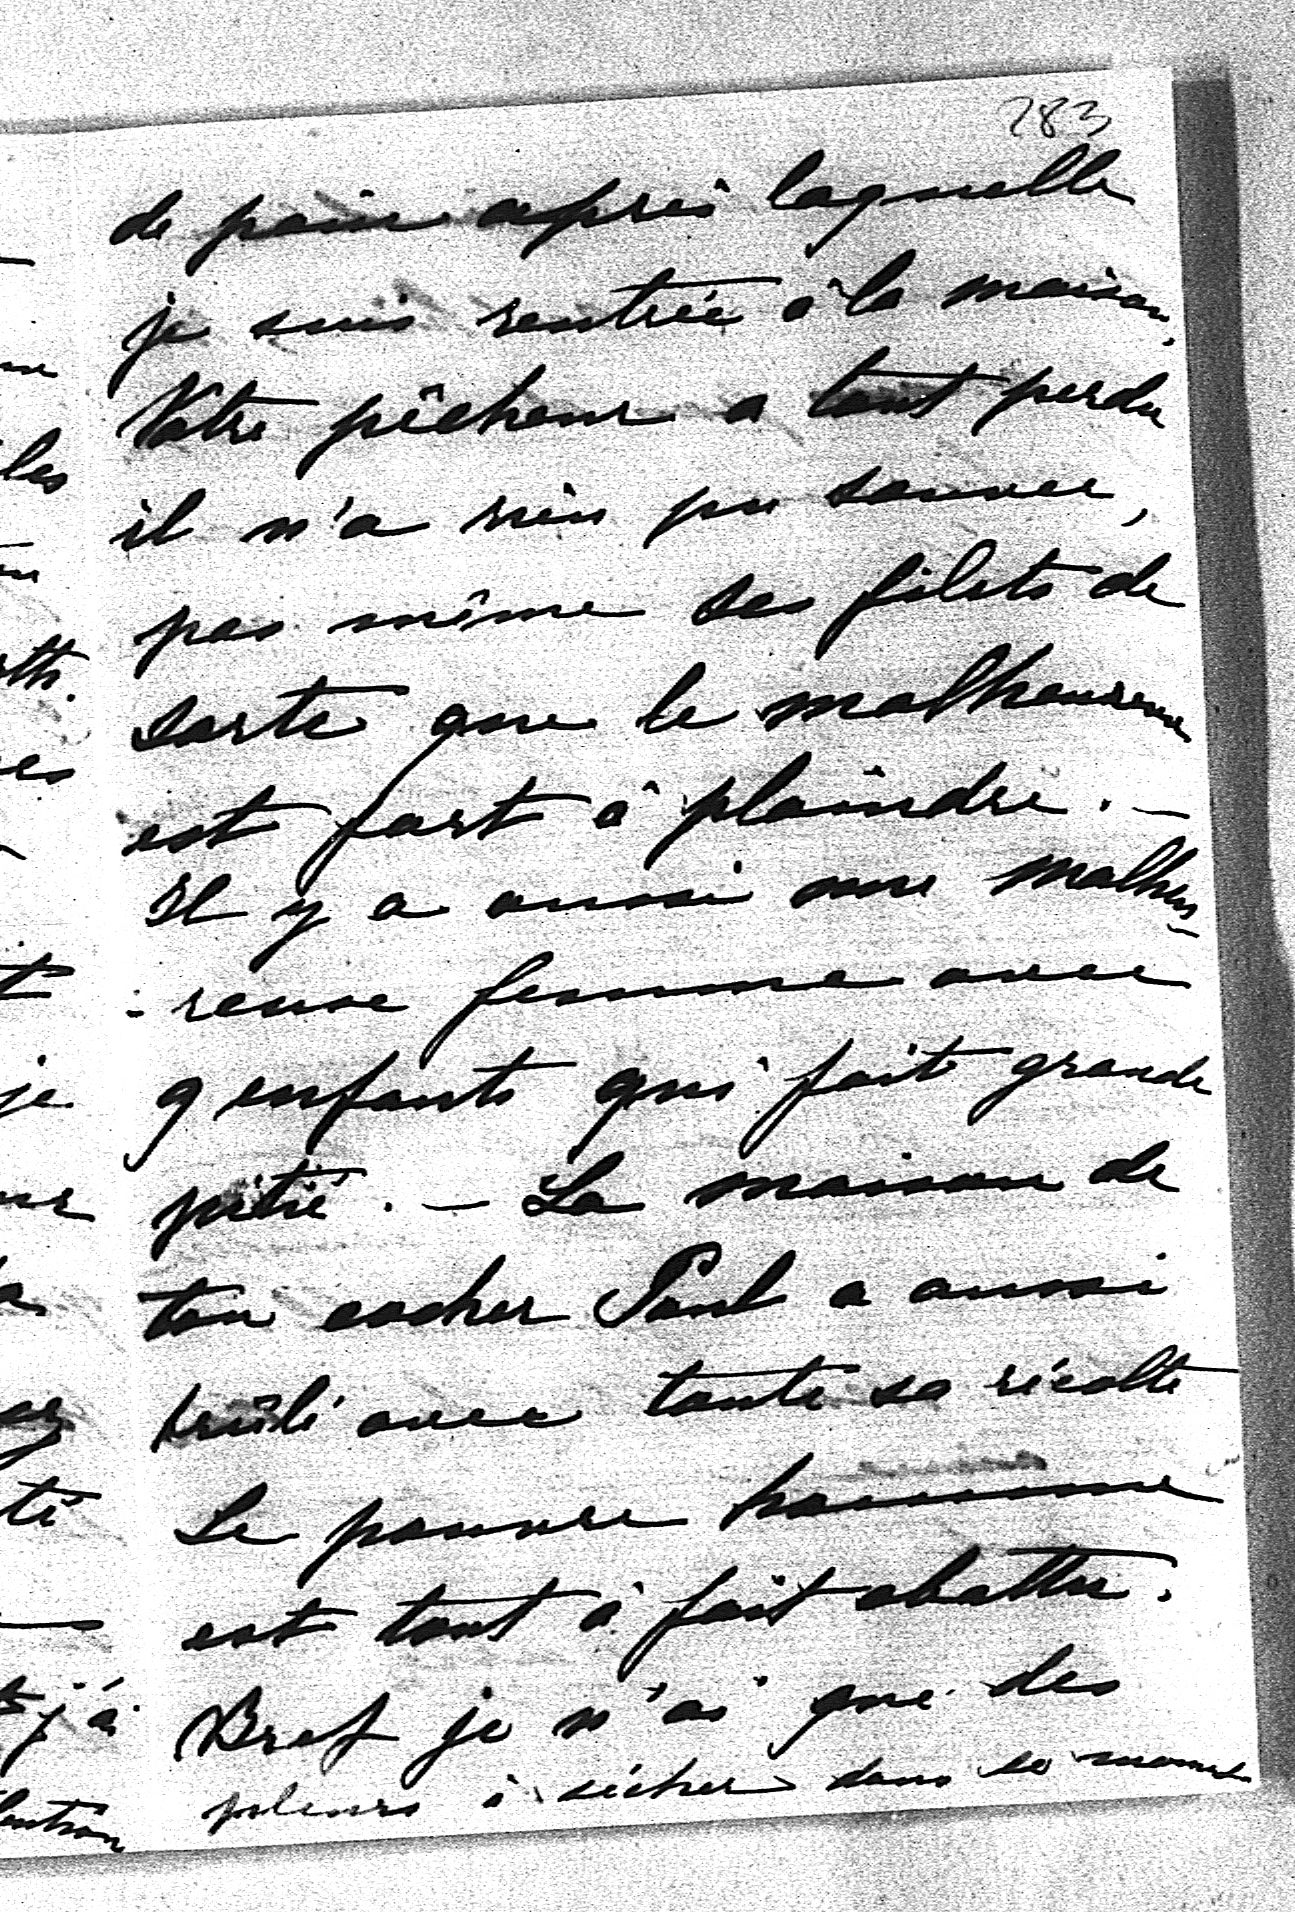 283
de pain après laquelle
je suis rentrée à la maison.
Votre pêcheur a tout perdu
il n'a rien pu sauver,
pas même ses filets de
sorte que le malheureux
est fort à plaindre. —
Il y a aussi une malheu-
-reuse femme avec
9 enfants qui fait grande
pitié. — La maison de
ton cocher Paul a aussi
brûlé avec toute sa récolte
Le pauvre homme
est tout à fait abattu.
Bref je n'ai que des
pleurs à sécher dans ce moment